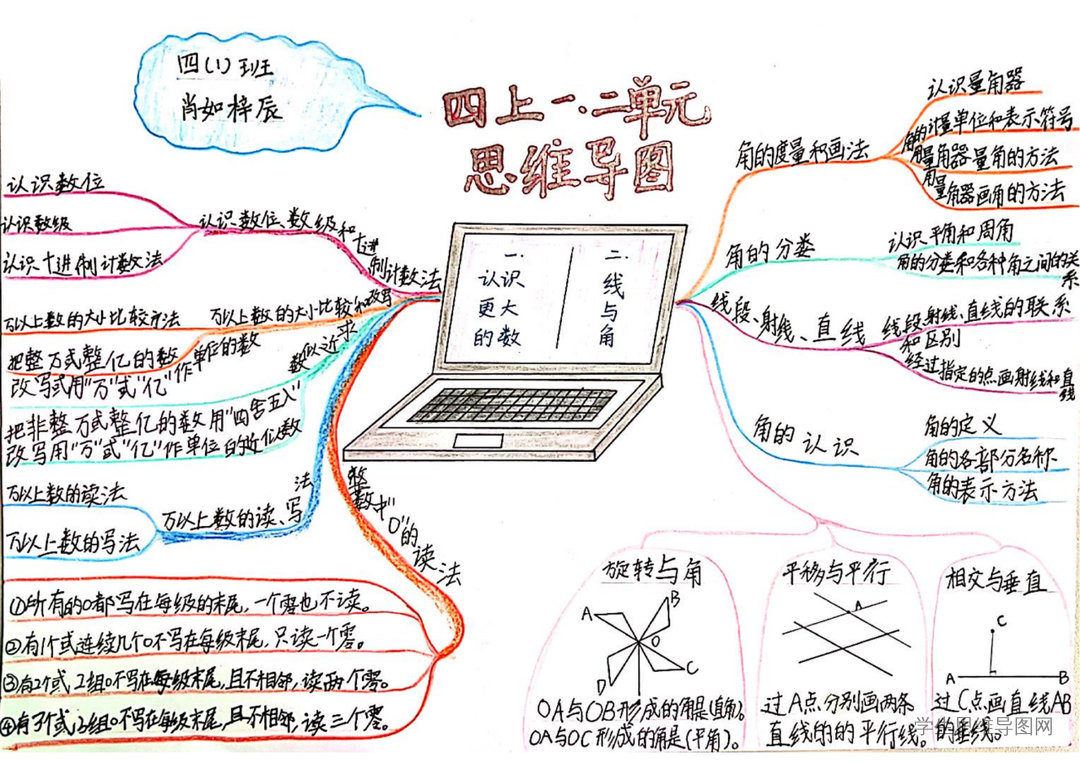 四(1)班
肖如梓辰
四上一、二单元
思维导图
一.
认识
更大
的数
二.
线
与
角
认识数位、数级和十进制计数法
认识数位
认识数级
认识十进制计数法
万以上数的大小比较和改写
万以上数的大小比较方法
把整万或整亿的数
改写或用“万”或“亿”作单位的数
求近似数
把非整万或整亿的数用“四舍五入”
改写用“万”或“亿”作单位的近似数
万以上数的读、写法
万以上数的读法
万以上数的写法
整数中“0”的读法
①所有的0都写在每级的末尾,一个零也不读。
②有1个或连续几个0不写在每级末尾,只读一个零。
③有2个或2组0不写在每级末尾,且不相邻,读两个零。
④有3个或3组0不写在每级末尾,且不相邻,读三个零。
角的度量和画法
认识量角器
角的计量单位和表示符号
用量角器量角的方法
用量角器画角的方法
角的分类
认识平角和周角
角的分类和各种角之间的关系
线段、射线、直线
线段、射线、直线的联系
和区别
经过指定的点画射线和直线
角的认识
角的定义
角的各部分名称
角的表示方法
旋转与角
A
B
O
D
C
OA与OB形成的角是(直角)。
OA与OC形成的角是(平角)。
平移与平行
A
过A点分别画两条
直线的的平行线。
相交与垂直
C
A
B
过C点画直线AB
的垂线。